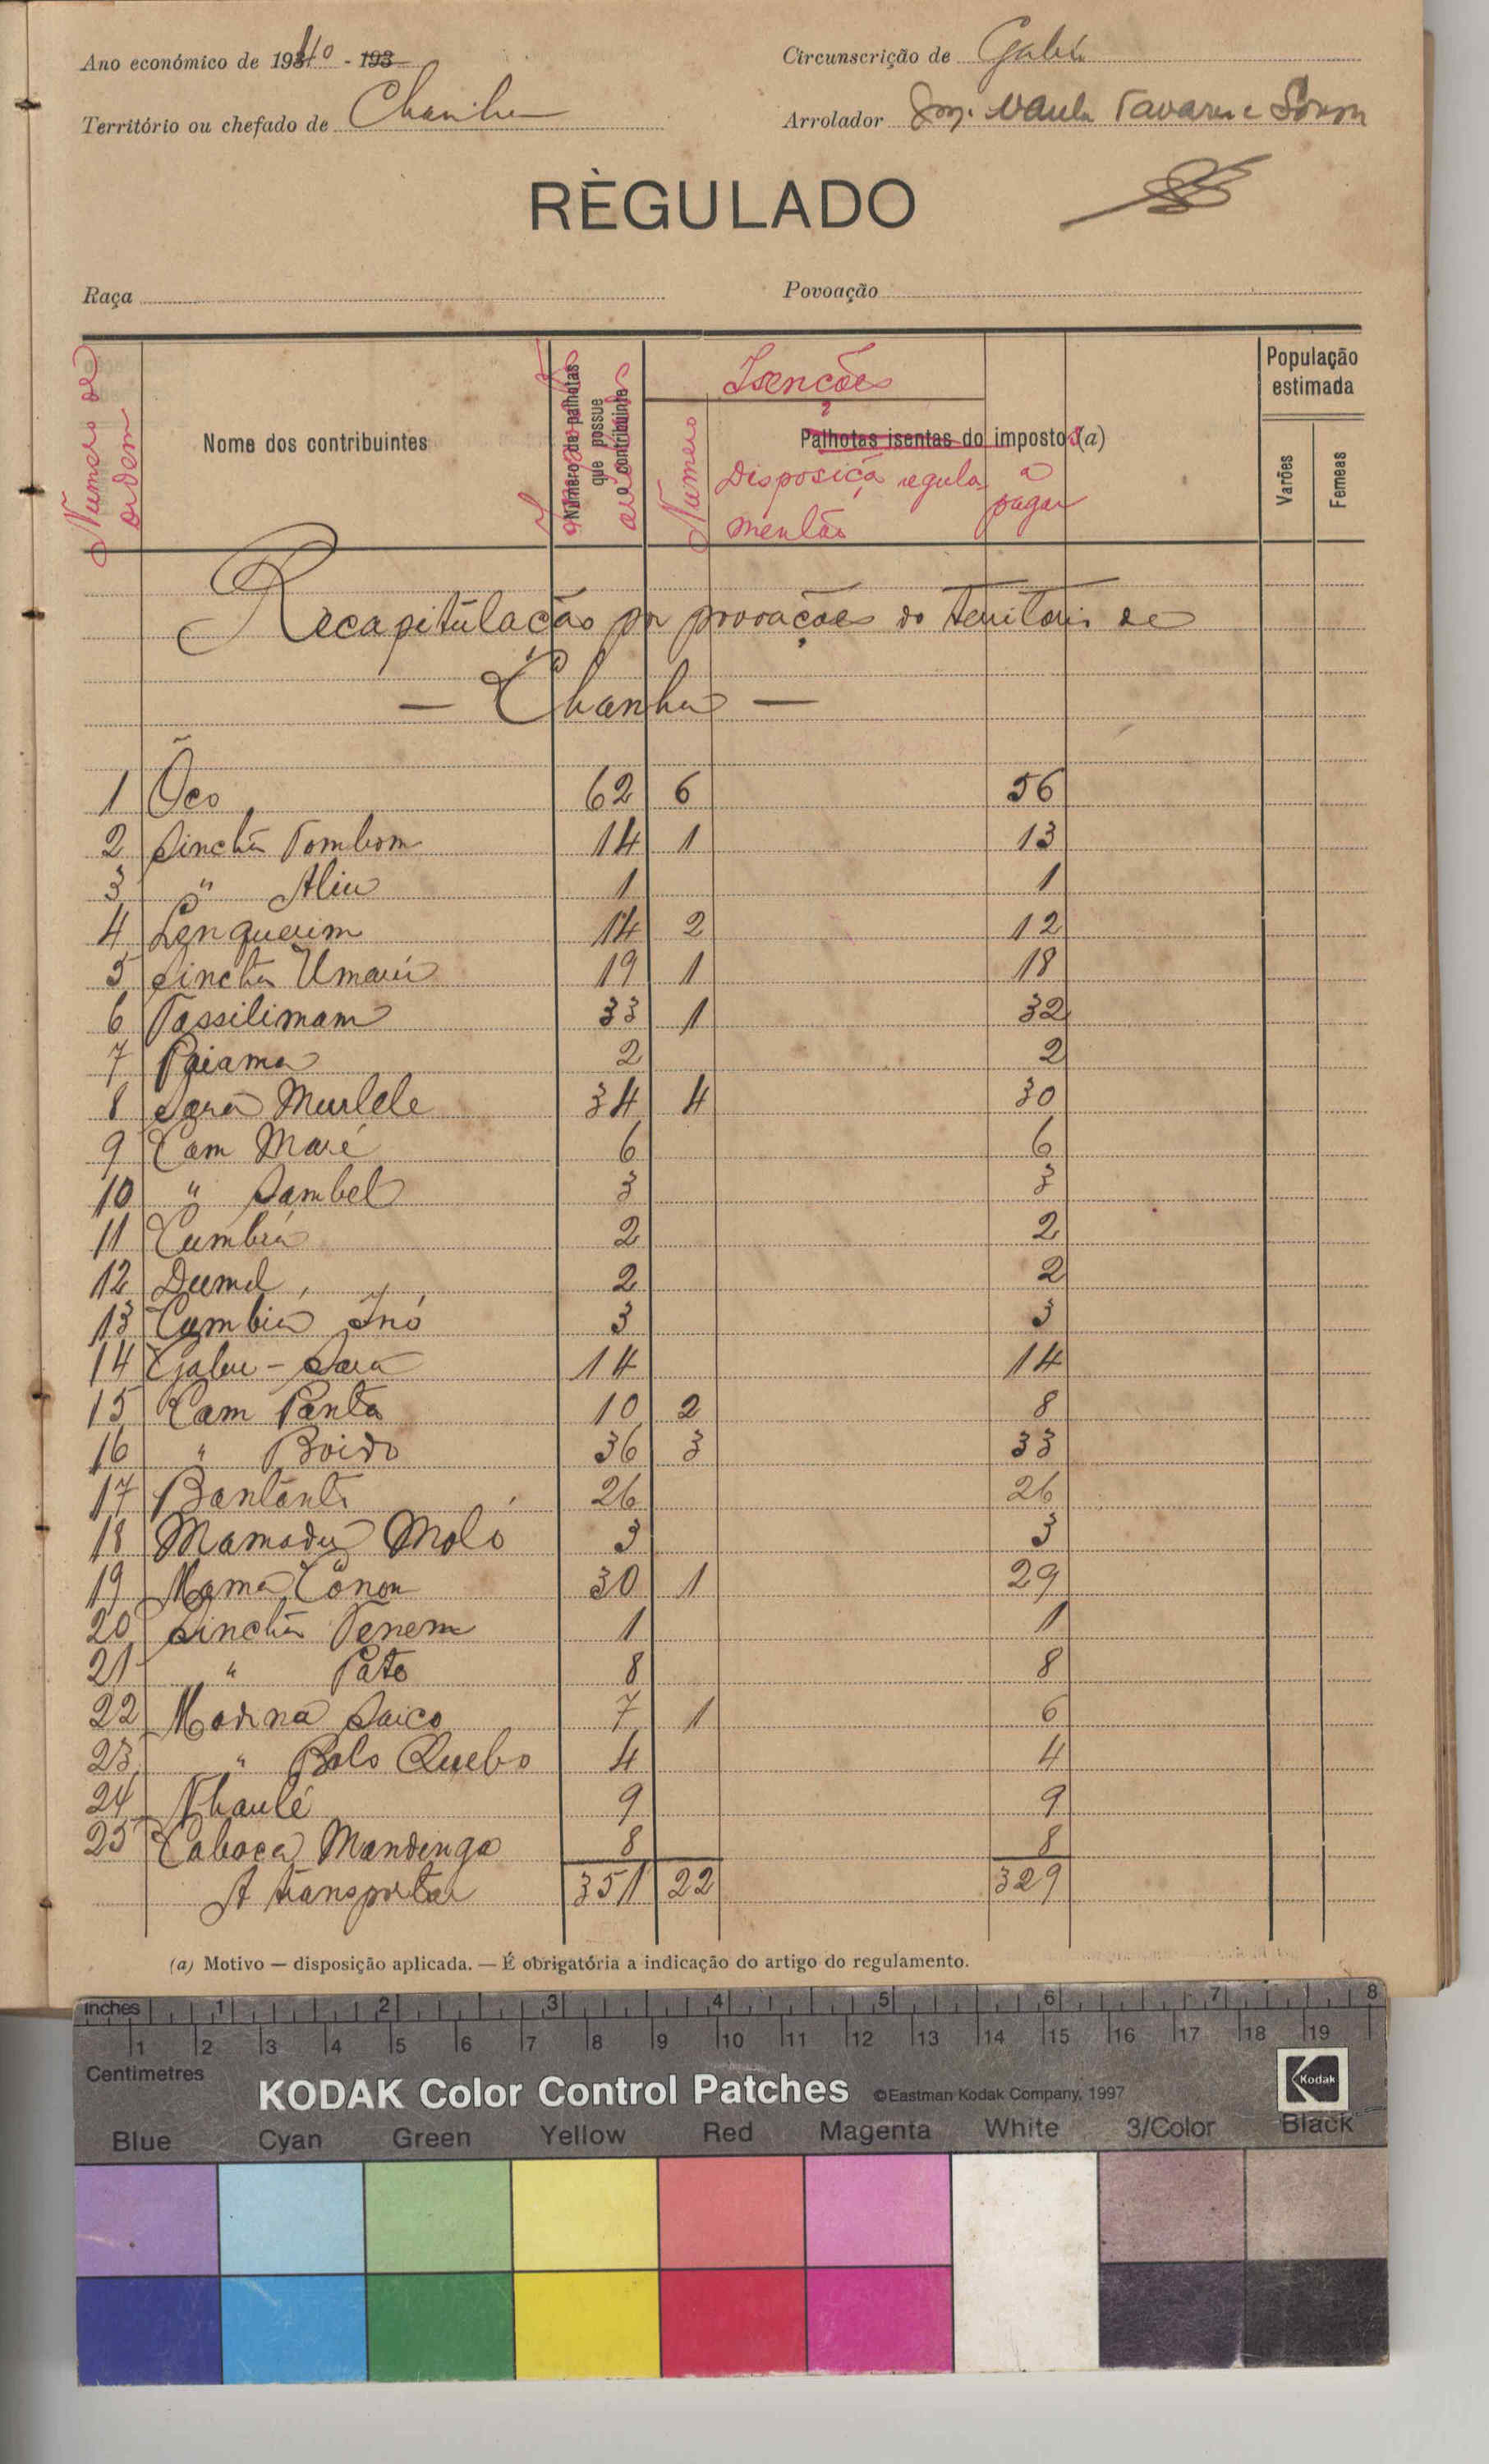 Ano económico de 1940 - 193
Circunscrição de Gabú
Território ou chefado de Chanha
Arrolador Tavares e Sousa
RÈGULADO
Raça
Povoação
Numero de ordem
Nome dos contribuintes
Número de palhotas que possue o contribuinte
Isenções
Numero
Palhotas isentas do impostos (a)
Disposiçã regula
mentão
a pagar
População estimada
Varões
Femeas
Recapitulação por povoações do territorio de
— Chanha —
1 Õco 62 6 56
2 Sinchã Tombom 14 1 13
3 " Aliu 1 1
4 Lenquerim 14 2 12
5 Sinchã Umarú 19 1 18
6 Tassilimam 33 1 32
7 Paiama 2 2
8 Sará Murlele 34 4 30
9 Cam Maré 6 6
10 " Sambel 3 3
11 Cumbiá 2 2
12 Dumel 2 2
13 Cumbiá Inó 3 3
14 Gabu - Sara 14 14
15 Cam Panta 10 2 8
16 " Boido 36 3 33
17 Bantanti 26 26
18 Mamadu Moló 3 3
19 Mama Conon 30 1 29
20 Sinchã Tenem 1 1
21 " Pate 8 8
22 Madina Saico 7 1 6
23 " Bolo Quebo 4 4
24 Nhaulé 9 9
25 Caboca Mandinga 8 8
A transportar 351 22 329
(a) Motivo — disposição aplicada. — É obrigatória a indicação do artigo do regulamento.
inches 1 2 3 4 5 6 7 8
1 2 3 4 5 6 7 8 9 10 11 12 13 14 15 16 17 18 19
Centimetres
KODAK Color Control Patches ©Eastman Kodak Company, 1997 Kodak
Blue Cyan Green Yellow Red Magenta White 3/Color Black